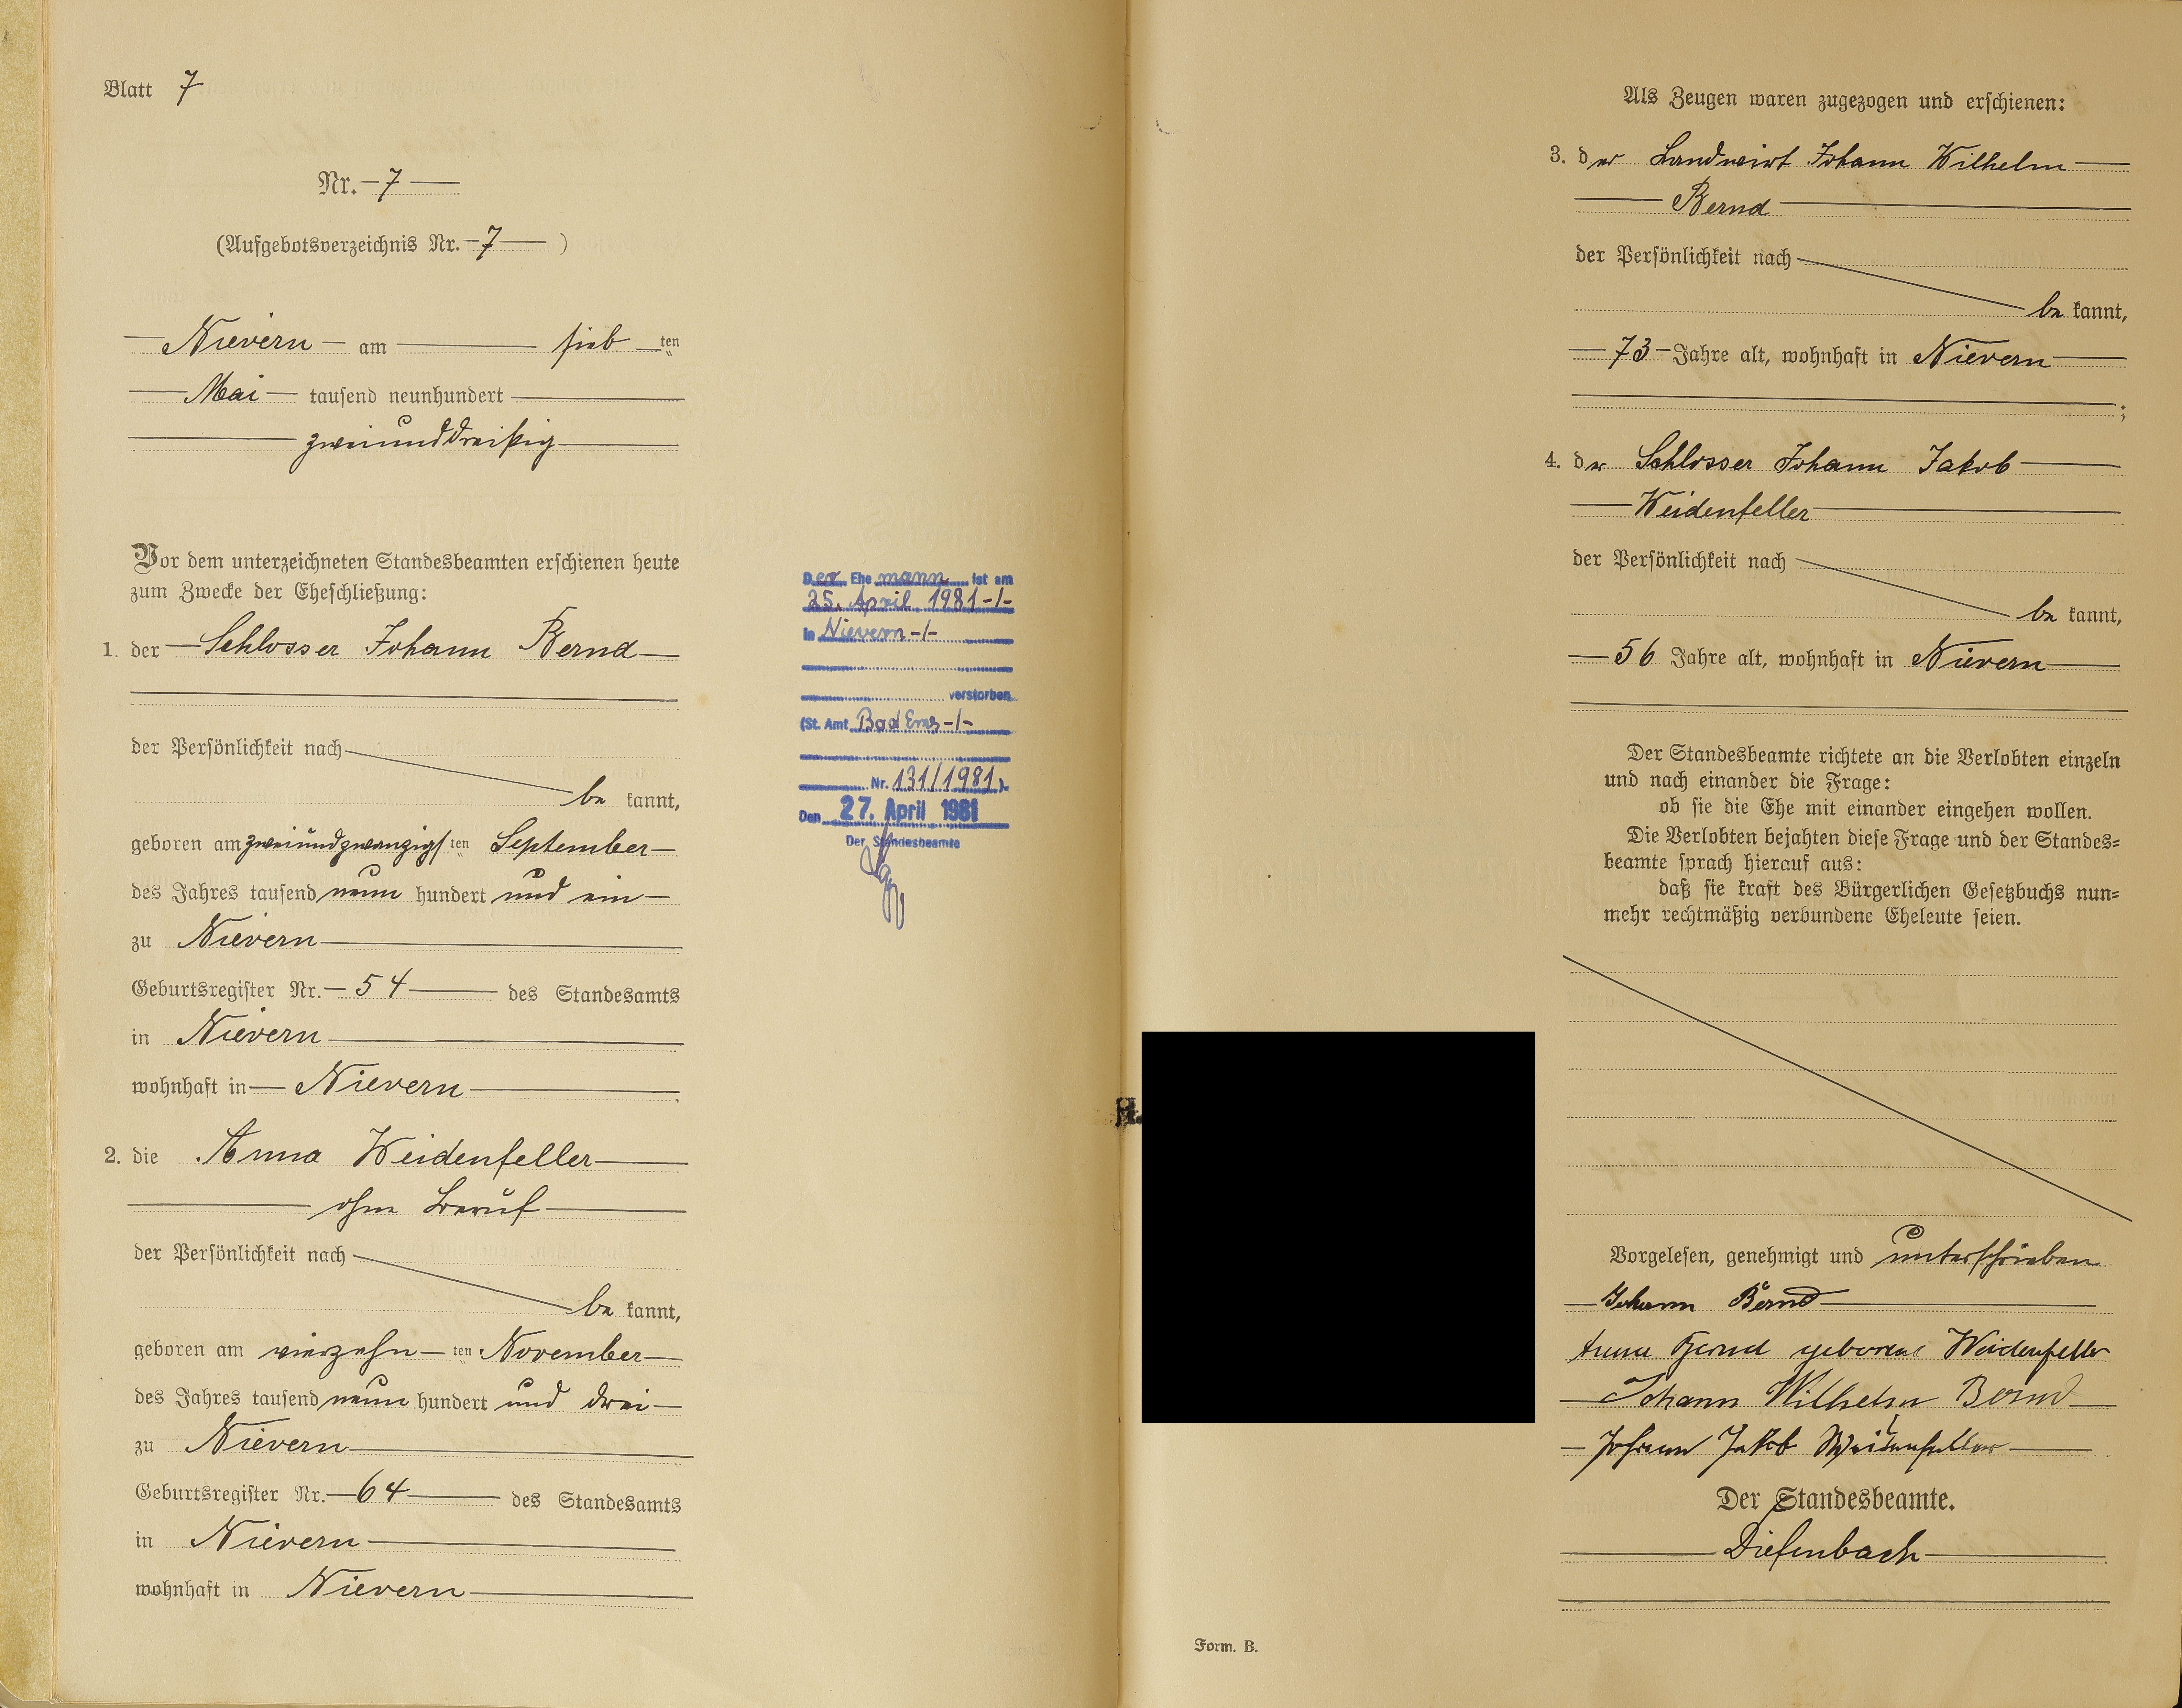 Blatt 7
Nr. 7
(Aufgebotsverzeichnis Nr. 7 )
Nievern am sieb ten
Mai tausend neunhundert
zweiunddreißig
Vor dem unterzeichneten Standesbeamten erschienen heute
zum Zwecke der Eheschließung:
1. der Schlosser Johann Bernd
der Persönlichkeit nach
be kannt,
geboren am zweiundzwanzigs ten September
des Jahres tausend neun hundert und ein
zu Nievern
Geburtsregister Nr. 54 des Standesamts
in Nievern
wohnhaft in Nievern
2. die Anna Weidenfeller
ohne Beruf
der Persönlichkeit nach
be kannt,
geboren am vierzehn ten November
des Jahres tausend neun hundert und drei
zu Nievern
Geburtsregister Nr. 64 des Standesamts
in Nievern
wohnhaft in Nievern
Der Ehe mann ist am
25. April 1981 -/-
in Nievern -/-
verstorben
(St. Amt Bad Ems -/-
Nr. 131/1981 ).
Den 27. April 1981
Der Standesbeamte
H.
Als Zeugen waren zugezogen und erschienen:
3. der Landwirt Johann Wilhelm
Bernd
der Persönlichkeit nach
be kannt,
73 Jahre alt, wohnhaft in Nievern
;
4. der Schlosser Johann Jakob
Weidenfeller
der Persönlichkeit nach
be kannt,
56 Jahre alt, wohnhaft in Nievern
Der Standesbeamte richtete an die Verlobten einzeln
und nach einander die Frage:
ob sie die Ehe mit einander eingehen wollen.
Die Verlobten bejahten diese Frage und der Standes=
beamte sprach hierauf aus:
daß sie kraft des Bürgerlichen Gesetzbuchs nun=
mehr rechtmäßig verbundene Eheleute seien.
Vorgelesen, genehmigt und unterschrieben
Johann Bernd
Anna Bernd geborene Weidenfeller
Johann Wilhelm Bernd
Johann Jakob Weidenfeller
Der Standesbeamte.
Diefenbach
Form. B.